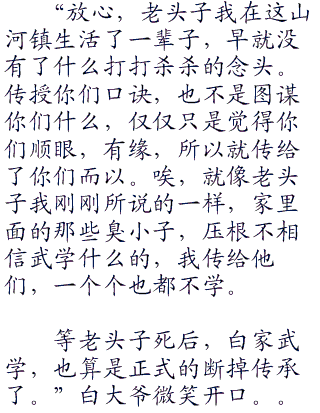 “放心，老头子我在这山
河镇生活了一辈子，早就没
有了什么打打杀杀的念头。
传授你们口诀，也不是图谋
你们什么，仅仅只是觉得你
们顺眼，有缘，所以就传给
了你们而以。唉，就像老头
子我刚刚所说的一样，家里
面的那些臭小子，压根不相
信武学什么的，我传给他
们，一个个也都不学。
等老头子死后，白家武
学，也算是正式的断掉传承
了。”白大爷微笑开口。。